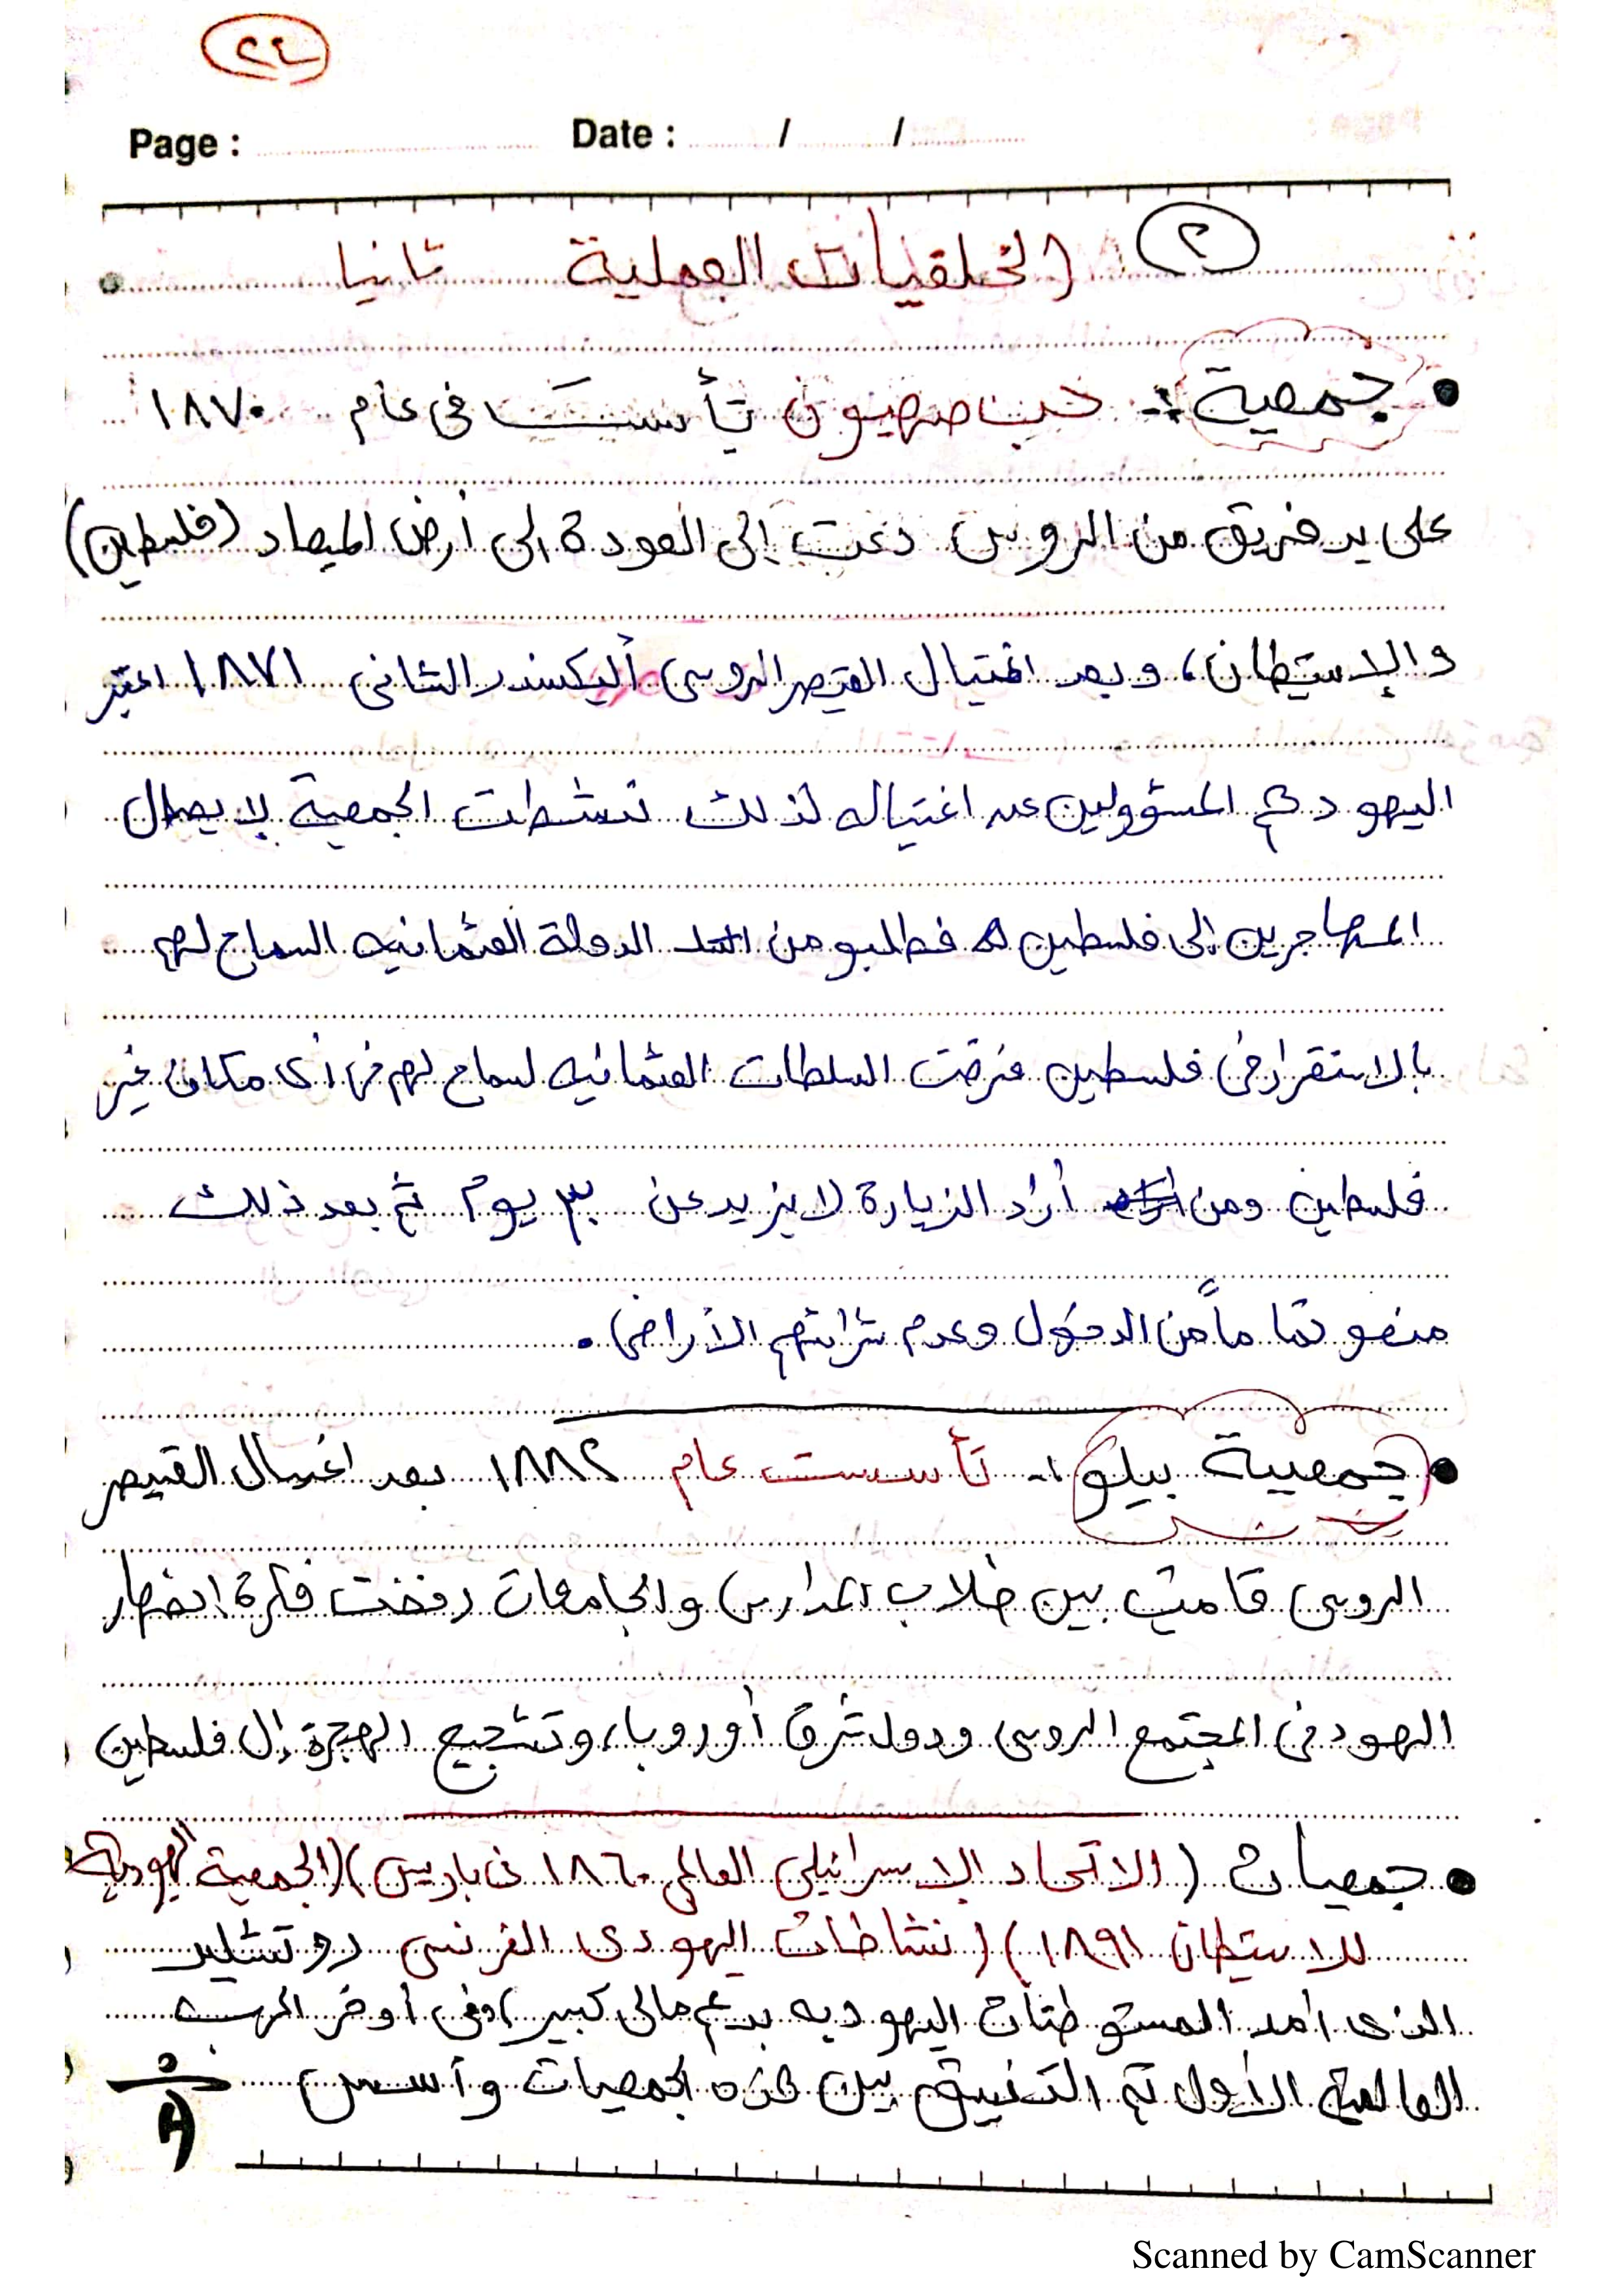 ٢٤
Page : Date : / /
٢ الخلقيات العملية ثانيا
• جمعية :- حب صهيون تأسست فى عام ١٨٧٠
على يد فريق من الروس دعت إلى العودة إلى أرض الميعاد (فلسطين)
والإستيطان، وبعد اغتيال القيصر الروسى أليكسندر الثانى ١٨٧١ اعتبر
اليهود هم المسؤولين عن اغتياله لذلك نشطت الجمعية لإيصال
المهاجرين إلى فلسطين فطلبو من الدولة العثمانيه السماح لهم
بالاستقرار فى فلسطين فرضت السلطات العثمانيه لسماح لهم فى أى مكان غير
فلسطين ومن أراد الزيارة لا يزيد عن ٣٠ يوم ثم بعد ذلك
منعو تماماً من الدخول وعدم شرائهم الأراضى .
• جمعية بيلو :- تأسست عام ١٨٨٢ بعد اغتيال القيصر
الروسى قامت بين طلاب المدارس والجامعات رفضت فكرة انصهار
اليهود فى المجتمع الروسى ودول شرق أوروبا، وتشجيع الهجرة إلى فلسطين
• جمعيات (الاتحاد الإسرائيلى العالمى ١٨٦٠ فى باريس) (الجمعية اليهودية
للاستيطان ١٨٩١) (نشاطات اليهودى الفرنسى روتشليد
الذى أمد المستوطنات اليهوديه بدعم مالى كبير) وفى أوخر الحرب
العالمية الأولى تم التنسيق بين هذه الجمعيات وأسس
Scanned by CamScanner